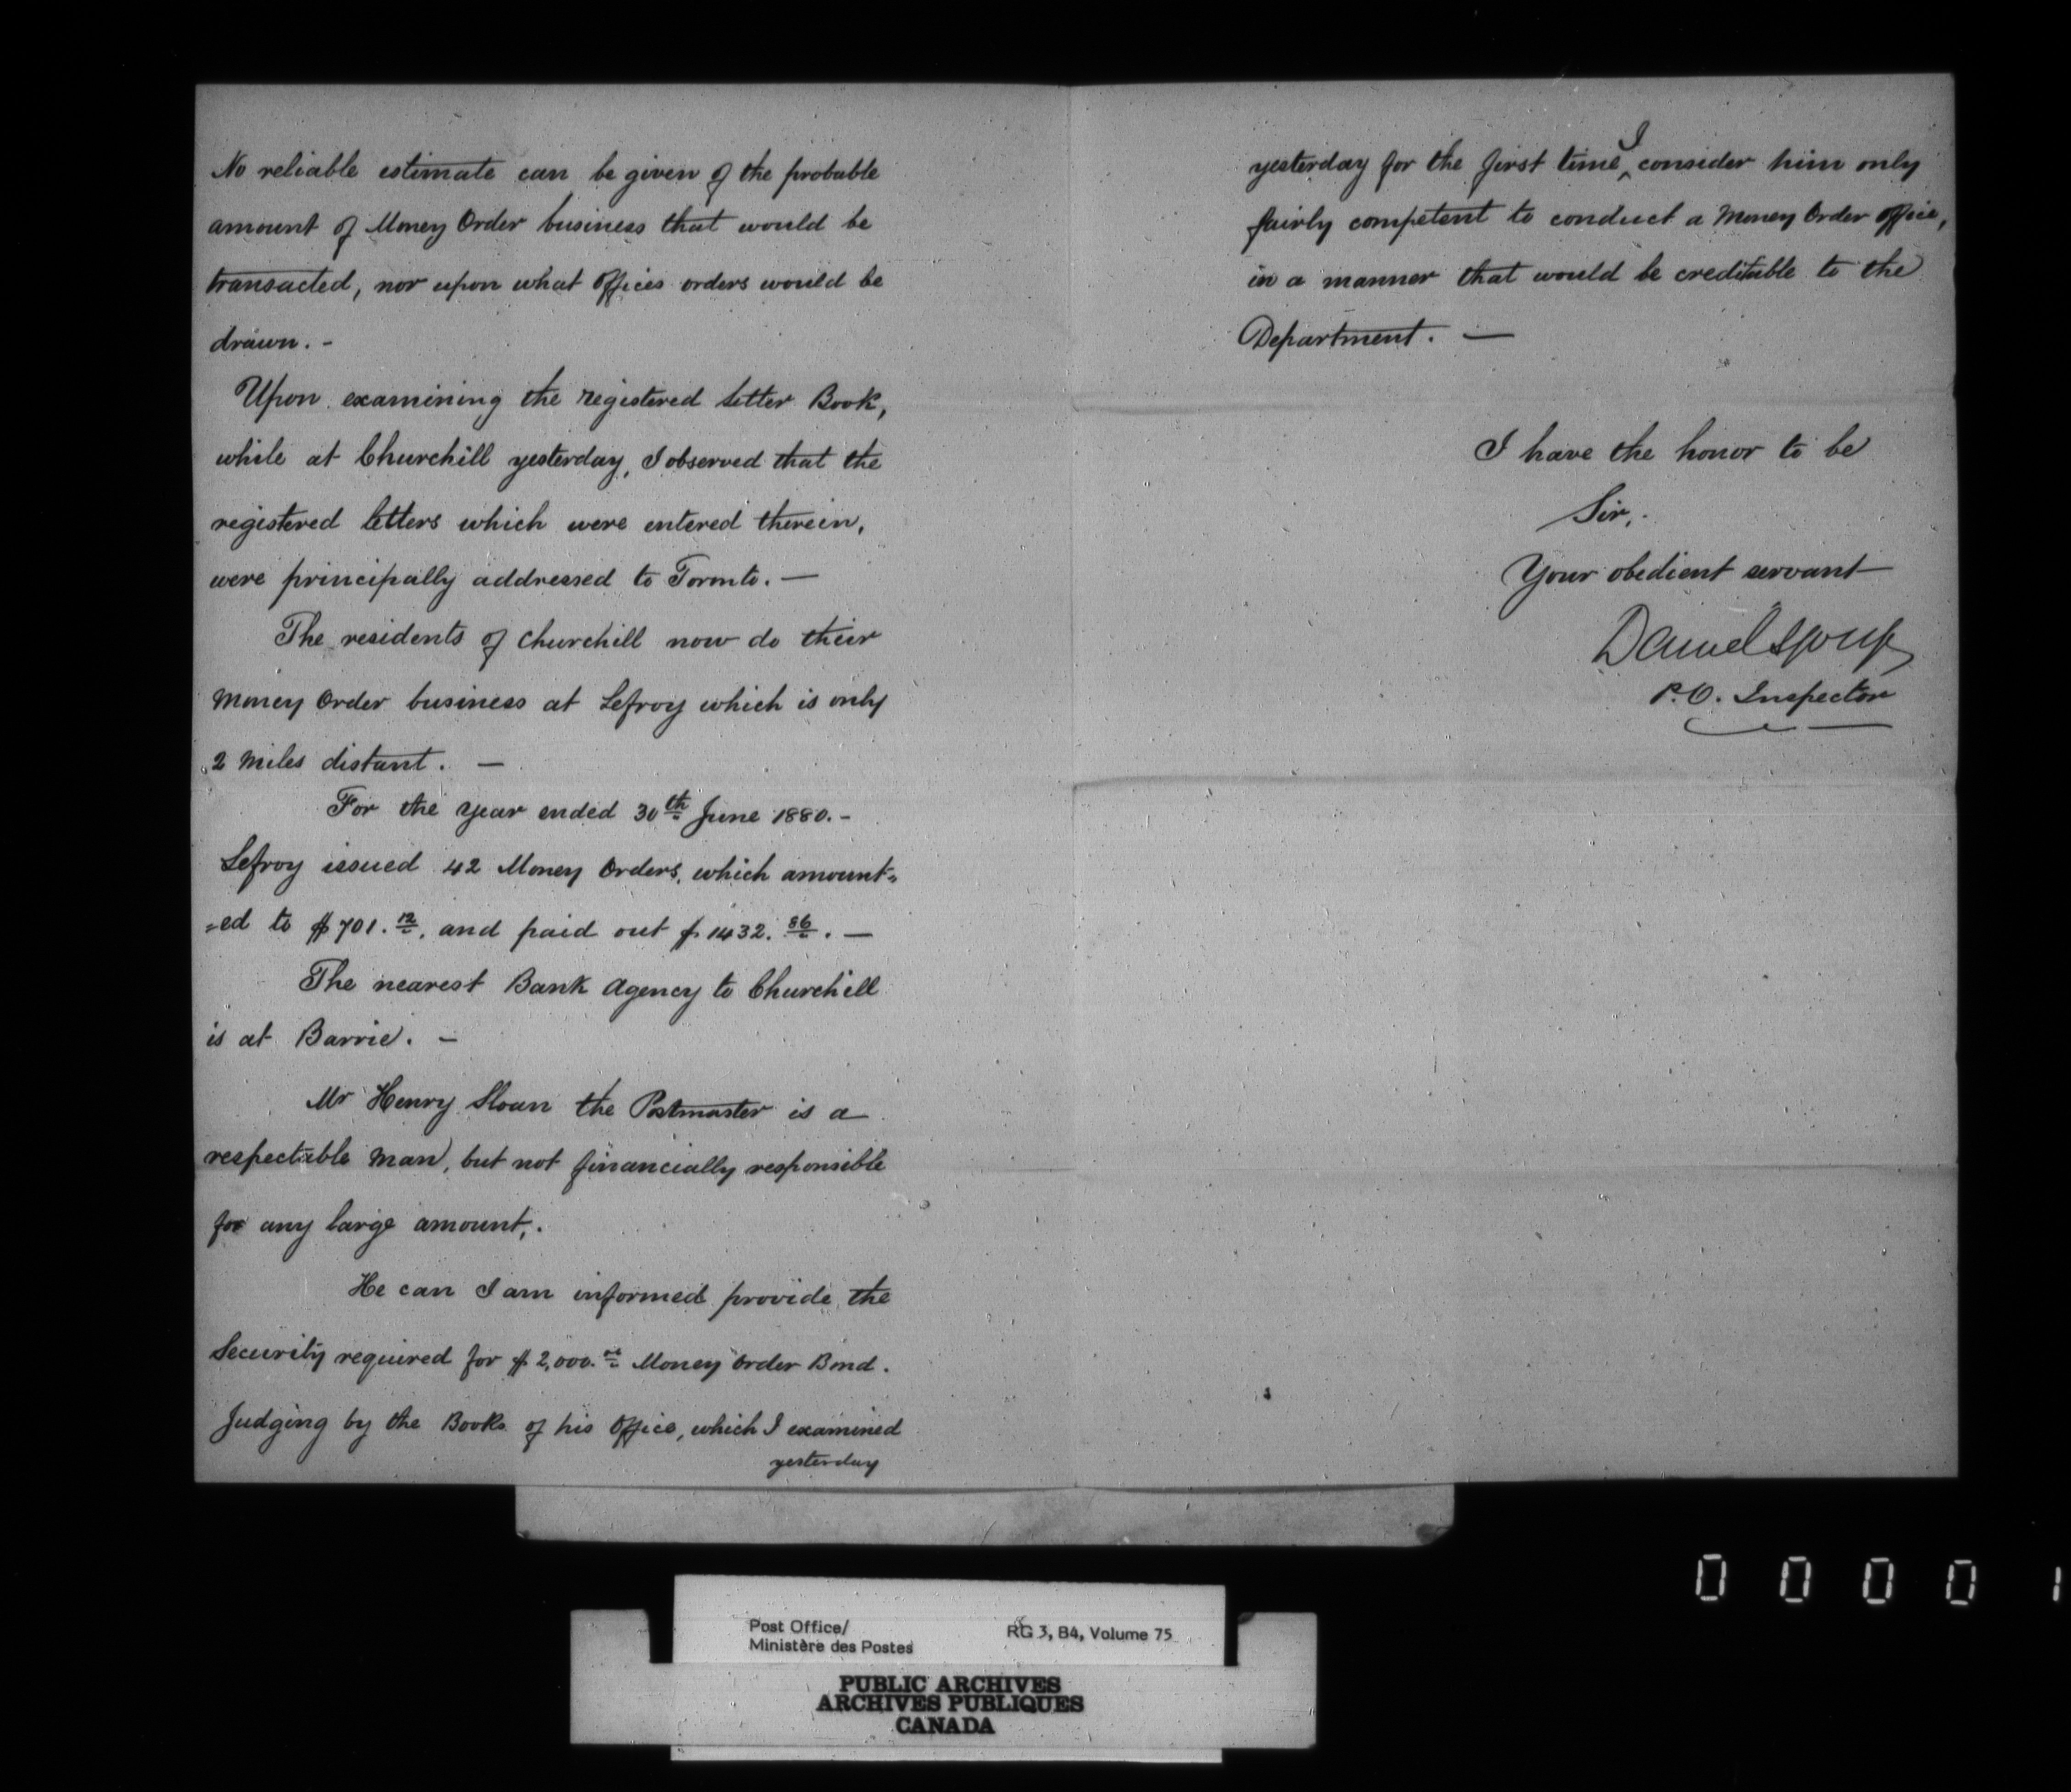 No reliable estimate can be given of the probable
amount of Money Order business that would be
transacted, nor upon what Offices orders would be
drawn. -
Upon examining the registered Letter Book,
while at Churchill yesterday, I observed that the
registered letters which were entered therein,
were principally addressed to Toronto. —
The residents of Churchill now do their
Money Order business at Lefroy which is only
2 Miles distant. —
For the year ended 30th June 1880. -
Lefroy issued 42 Money Orders, which amount=
=ed to $701.12, and paid out $1432.86. —
The nearest Bank Agency to Churchill
is at Barrie. -
Mr Henry Sloan the Postmaster is a
respectable Man, but not financially responsible
for any large amount,.
He can I am informed provide the
Security required for $2,000.00 Money Order Bond.
Judging by the Books of his Office, which I examined
yesterday
yesterday for the first time, I consider him only
fairly competent to conduct a Money Order Office,
in a manner that would be creditable to the
Department. —
I have the honor to be
Sir,.
Your obedient servant
Daniel Spry
P.O. Inspector
Post Office/
Ministère des Postes
RG 3, B4, Volume 75
PUBLIC ARCHIVES
ARCHIVES PUBLIQUES
CANADA
0 0 0 0 1